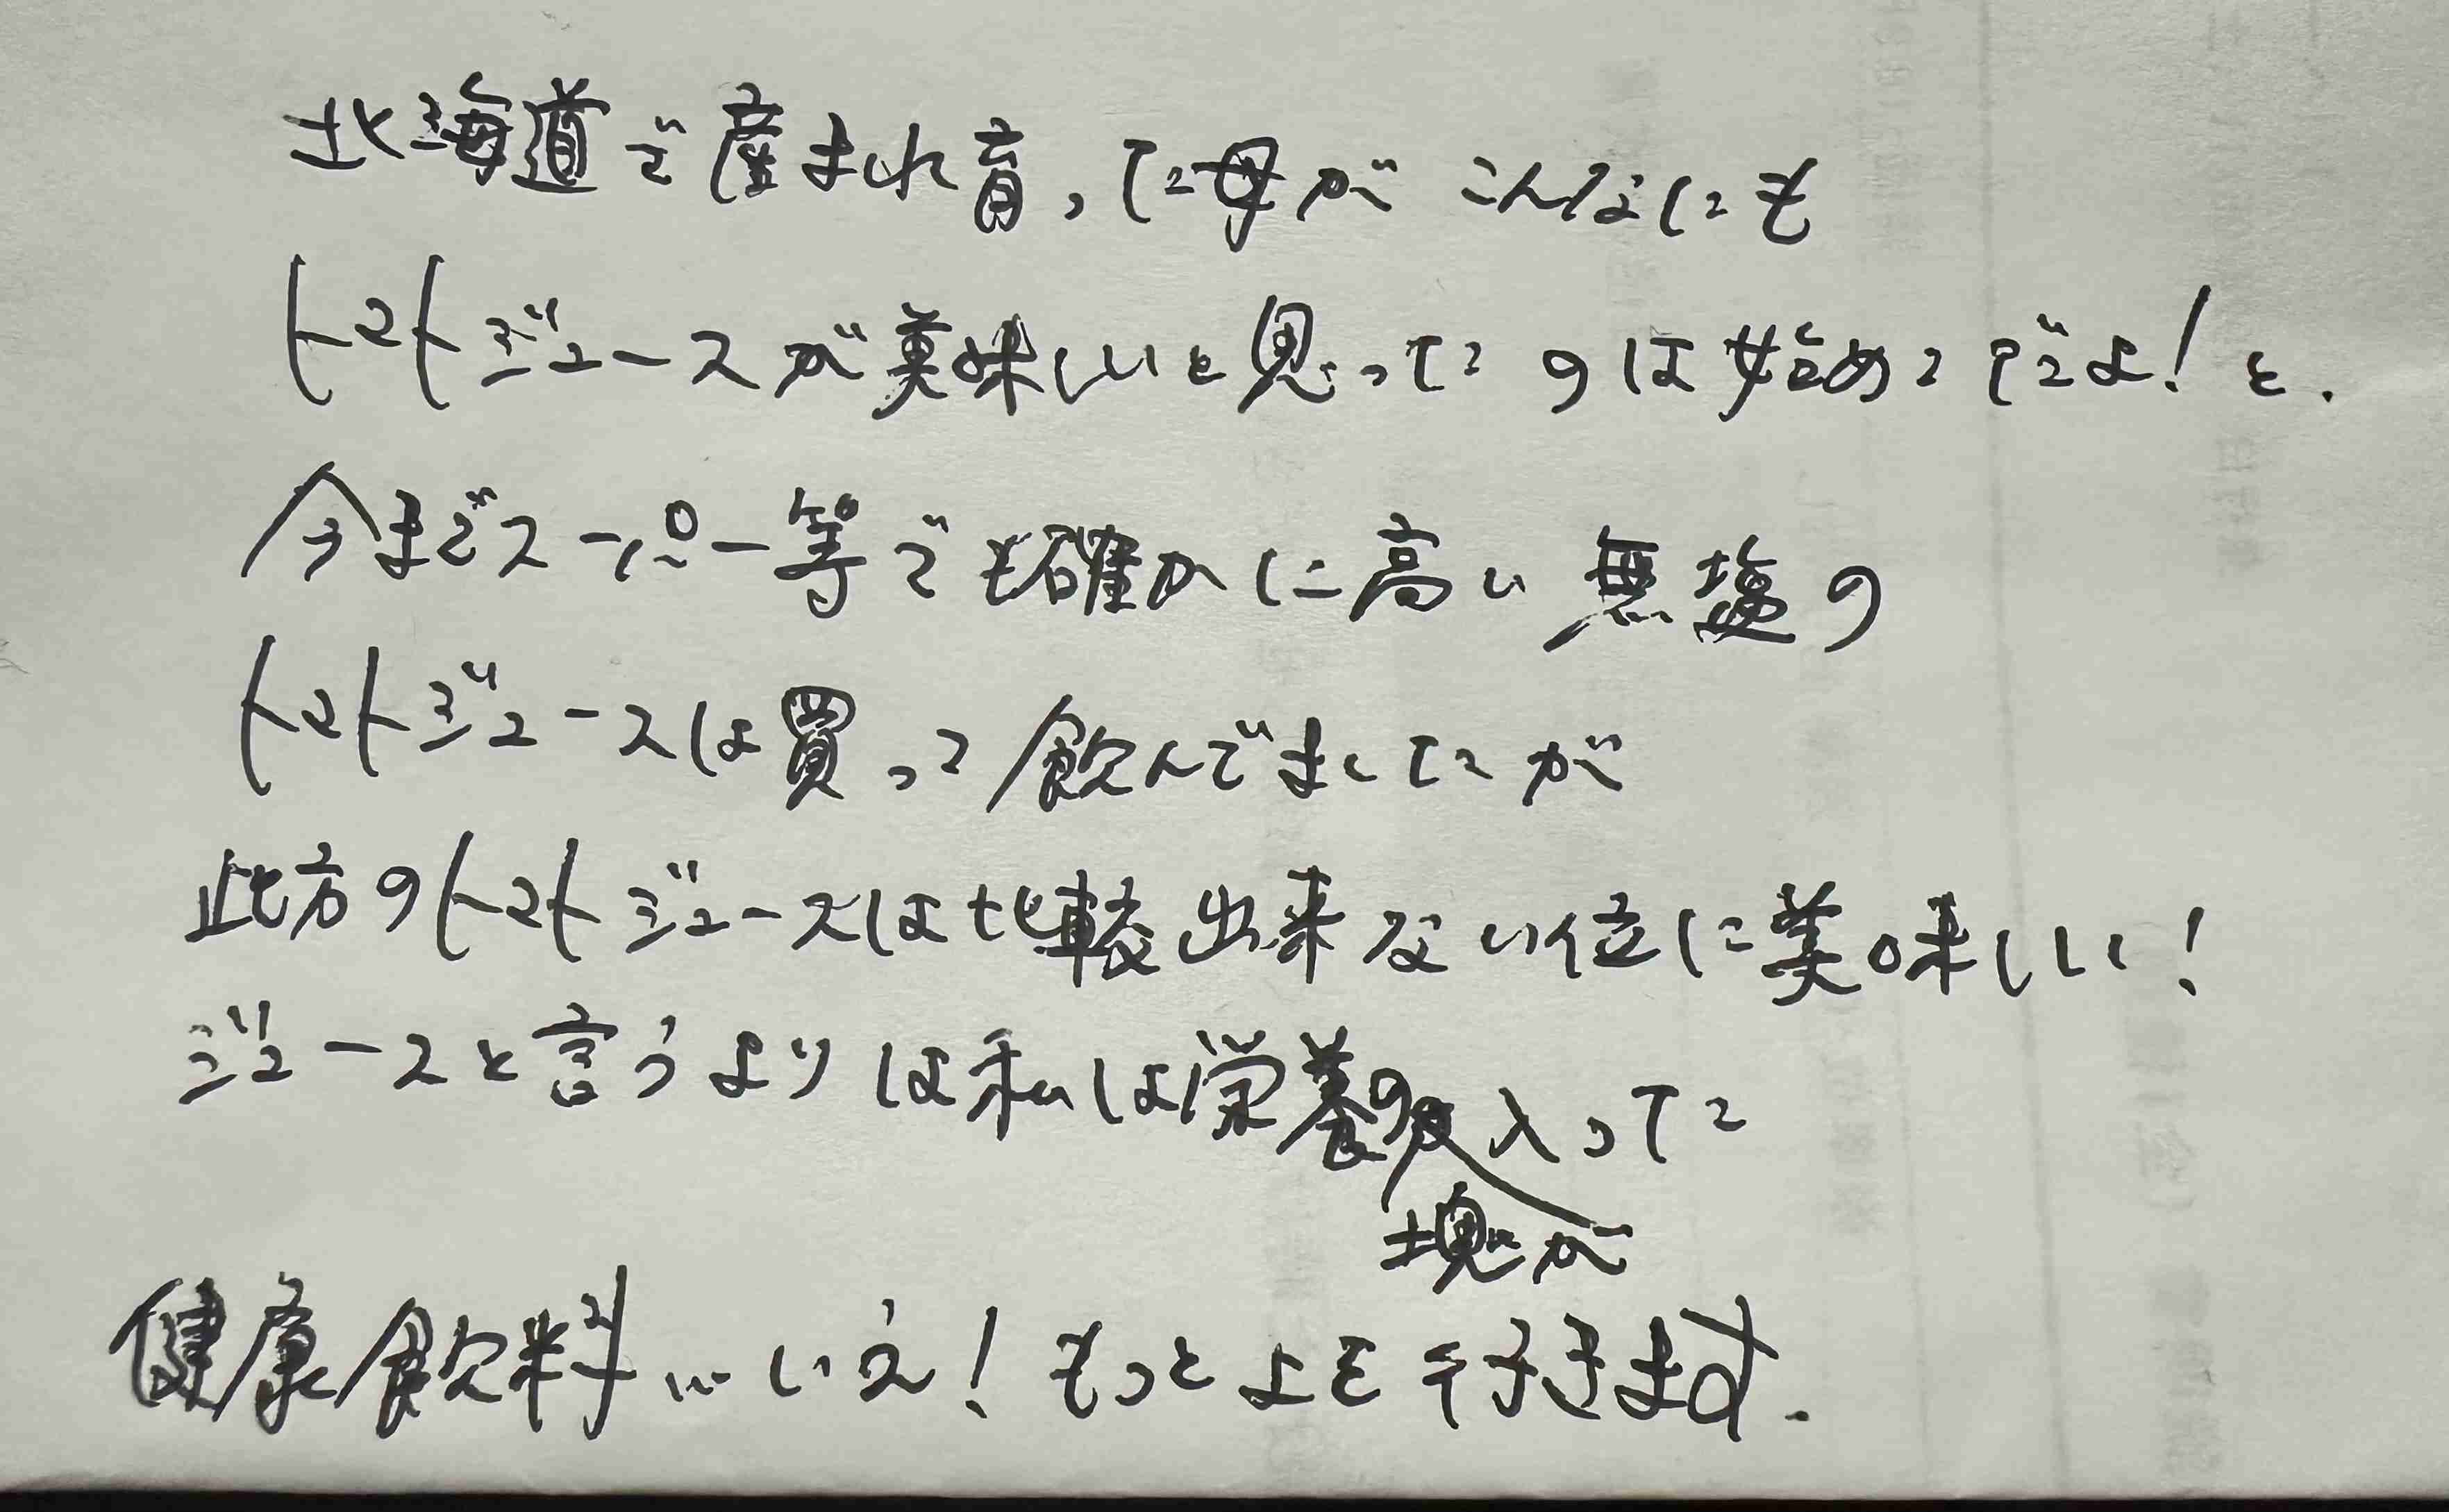 北海道で産まれ育った母がこんなにも
トマトジュースが美味しいと思ったのは始めてだよ!と.
今までスーパー等でも確かに高い無塩の
トマトジュースは買って飲んでましたが
此方のトマトジュースは比較出来ない位に美味しい!
ジュースと言うよりは私は栄養の入った
塊が
健康飲料…いえ!もっと上を行きます.